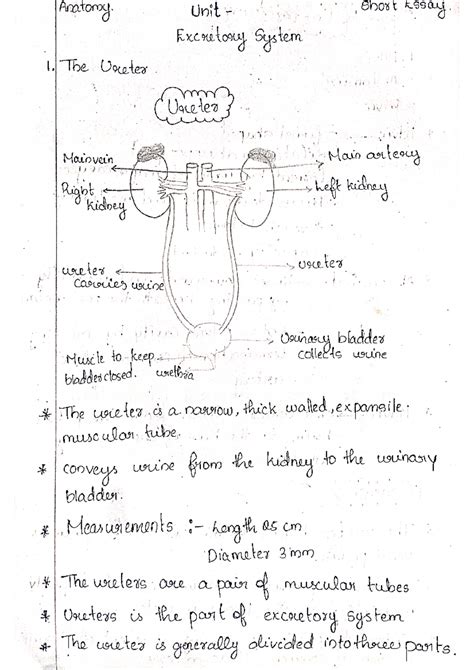 Anatomy.
Unit -
Short Essay
Excretory System
1. The Ureter
Ureter
Main vein
Main artery
Right kidney
Left kidney
ureter carries urine
ureter
Urinary bladder
collects urine
Muscle to keep
bladder closed.
urethra
* The ureter is a narrow, thick walled, expansile
muscular tube.
* conveys urine from the kidney to the urinary
bladder.
* Measurements :- Length 25 cm
Diameter 3 mm
* The ureters are a pair of muscular tubes
* Ureters is the part of excretory system
* The ureter is generally divided into three parts.